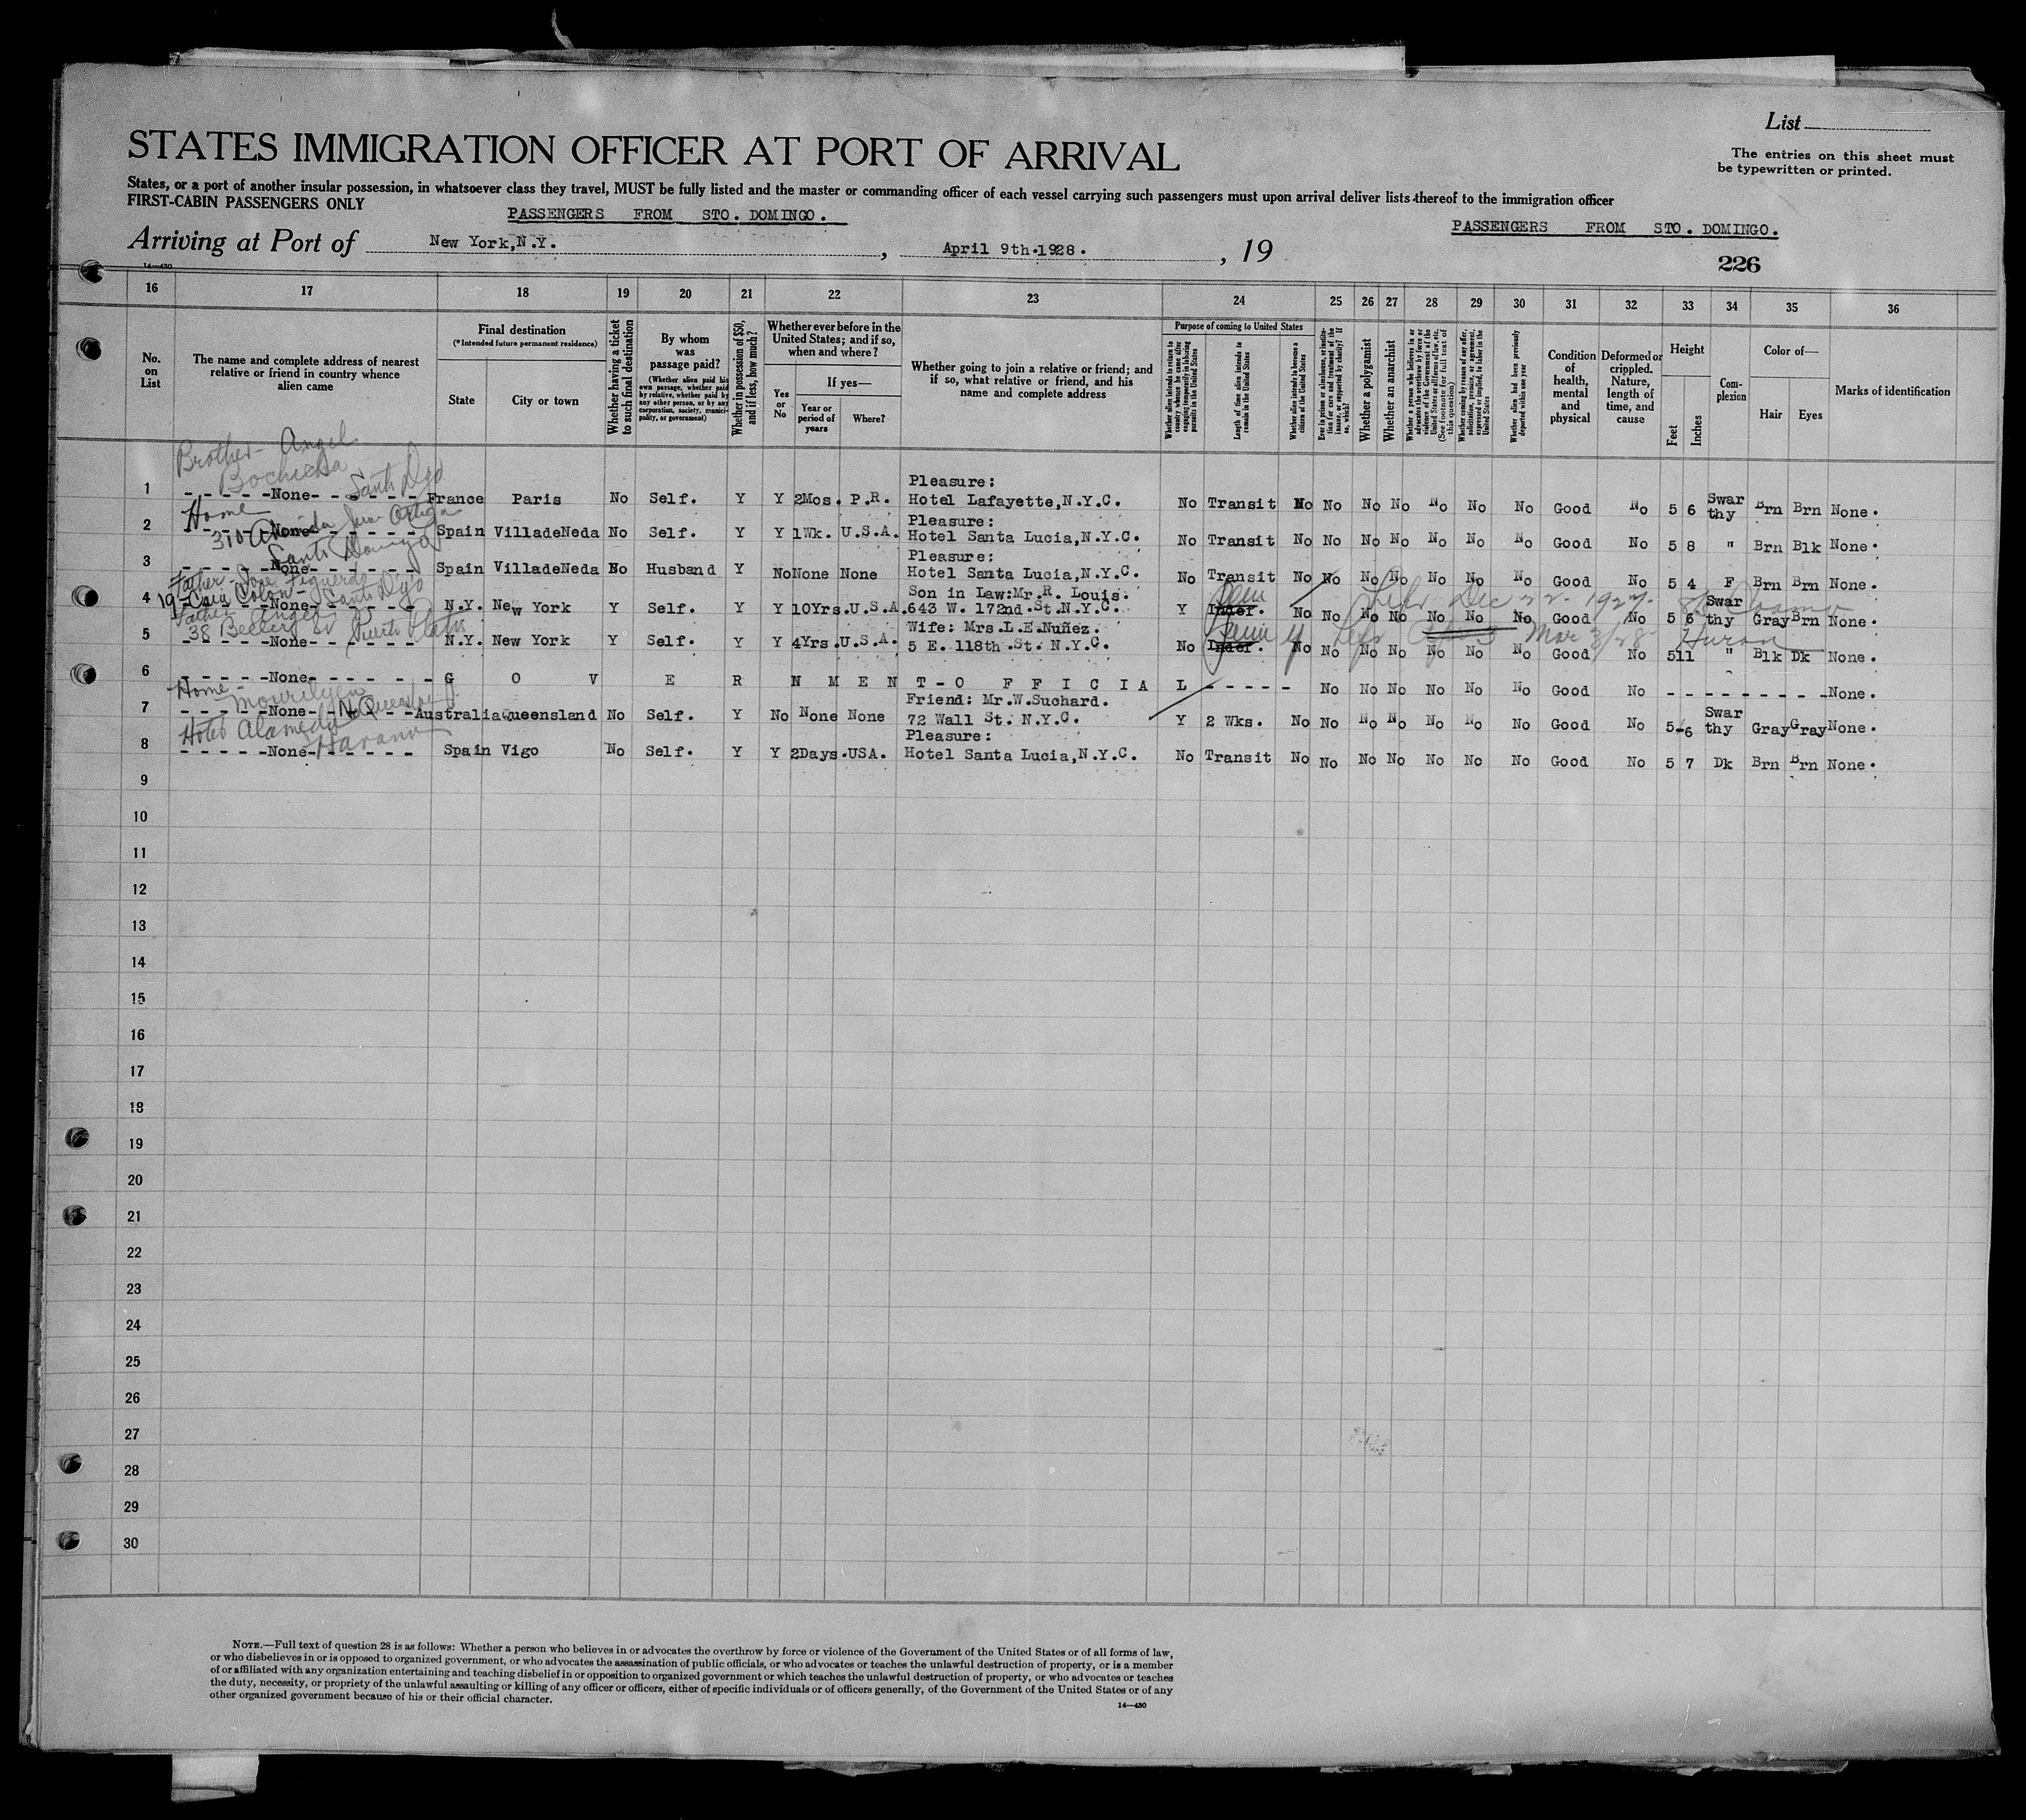 List
STATES IMMIGRATION OFFICER AT PORT OF ARRIVAL
The entries on this sheet must
be typewritten or printed.
States, or a port of another insular possession, in whatsoever class they travel, MUST be fully listed and the master or commanding officer of each vessel carrying such passengers must upon arrival deliver lists thereof to the immigration officer
FIRST-CABIN PASSENGERS ONLY
PASSENGERS FROM STO. DOMINGO.
PASSENGERS FROM STO. DOMINGO.
Arriving at Port of New York,N.Y. , April 9th.1928. , 19
14—430
226
16 17 18 19 20 21 22 23 24 25 26 27 28 29 30 31 32 33 34 35 36
No. on List
The name and complete address of nearest relative or friend in country whence alien came
Final destination
(*Intended future permanent residence)
State
City or town
Whether having a ticket to such final destination
By whom was passage paid?
(Whether alien paid his own passage, whether paid by relative, whether paid by any other person, or by any corporation, society, municipality, or government)
Whether in possession of $50, and if less, how much?
Whether ever before in the United States; and if so, when and where?
Yes or No
If yes—
Year or period of years
Where?
Whether going to join a relative or friend; and if so, what relative or friend, and his name and complete address
Purpose of coming to United States
Whether alien intends to return to country whence he came after engaging temporarily in laboring pursuits in the United States
Length of time alien intends to remain in the United States
Whether alien intends to become a citizen of the United States
Ever in prison or almshouse, or institution for care and treatment of the insane, or supported by charity? If so, which?
Whether a polygamist
Whether an anarchist
(See footnote for full text of this question)
Whether coming by reason of any offer, solicitation, promise, or agreement, expressed or implied, to labor in the United States
Whether alien had been previously deported within one year
Condition of health, mental and physical
Deformed or crippled. Nature, length of time, and cause
Height
Feet
Inches
Complexion
Color of—
Hair
Eyes
Marks of identification
Brother - Angel
Santo Dgo
Pleasure:
1 - - - - -None- - - - - - France Paris No Self. Y Y 2Mos. P.R. Hotel Lafayette,N.Y.C. No Transit No No No No No No No Good No 5 6 Swar thy Brn Brn None.
Home
Pleasure:
2 None Spain VilladeNeda No Self. Y Y 1Wk. U.S.A. Hotel Santa Lucia,N.Y.C. No Transit No No No No No No No Good No 5 8 " Brn Blk None.
310
Santo Domingo
Pleasure:
3 - - - - -None- - - - - - Spain VilladeNeda No Husband Y No None None Hotel Santa Lucia,N.Y.C. No Transit No No No No No No No Good No 5 4 F Brn Brn None.
Father - Jose Figueredo
19- Colon - Santo Dgo
Son in Law:Mr.R. Louis.
Left Dec 22 - 1927
4 - - - - -None- - - - - - N.Y. New York Y Self. Y Y 10Yrs.U.S.A. 643 W. 172nd.St.N.Y.C. Y Indef. No No No No No No No Good No 5 6 Swar thy Gray Brn None.
Father Angel
38 Puerto Plata
Wife: Mrs.L.E.Nuñez.
Left Mar 3/28 Huron
5 - - - - -None- - - - - - N.Y. New York Y Self. Y Y 4Yrs.U.S.A. 5 E. 118th.St. N.Y.C. No Indef. No No No No No No No Good No 5 11 " Blk Dk None.
6 - - - - -None- - - - - - G O V E R N M E N T - O F F I C I A L - - - - - No No No No No No Good No - - - - - - - - -None.
Home -
Mourilyan
N. Queensland
Friend: Mr.W.Suchard.
7 - - - - -None- - - - - - Australia Queensland No Self. Y No None None 72 Wall St. N.Y.C. Y 2 Wks. No No No No No No No Good No 5 6 Swar thy Gray Gray None.
Hotel Alameda
Havana
Pleasure:
8 - - - - -None- - - - - - Spain Vigo No Self. Y Y 2Days.USA. Hotel Santa Lucia,N.Y.C. No Transit No No No No No No No Good No 5 7 Dk Brn Brn None.
9
10
11
12
13
14
15
16
17
18
19
20
21
22
23
24
25
26
27
28
29
30
NOTE.—Full text of question 28 is as follows: Whether a person who believes in or advocates the overthrow by force or violence of the Government of the United States or of all forms of law,
or who disbelieves in or is opposed to organized government, or who advocates the assassination of public officials, or who advocates or teaches the unlawful destruction of property, or is a member
of or affiliated with any organization entertaining and teaching disbelief in or opposition to organized government or which teaches the unlawful destruction of property, or who advocates or teaches
the duty, necessity, or propriety of the unlawful assaulting or killing of any officer or officers, either of specific individuals or of officers generally, of the Government of the United States or of any
other organized government because of his or their official character.
14—430